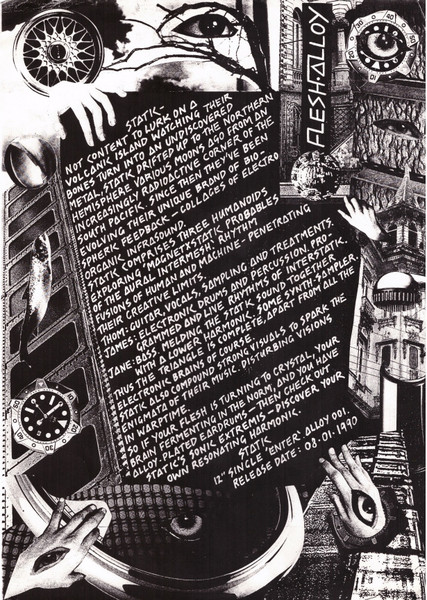 FLESH-ALLOY
STATIC-
NOT CONTENT TO LURK ON A
VOLCANIC ISLAND WATCHING THEIR
BONES TURN INTO AN UNDISCOVERED
METAL, STATIC DRIFTED UP TO THE NORTHERN
HEMISPHERE VARIOUS MOONS AGO FROM AN
INCREASINGLY RADIOACTIVE CORNER OF THE
SOUTH PACIFIC. SINCE THEN THEY'VE BEEN
EVOLVING THEIR UNIQUE BRAND OF BIO
SPHERIC FEEDBACK - COLLAGES OF ELECTRO
ORGANIC ULTRASOUND.
STATIC COMPRISES THREE HUMANOIDS
EXPLORING 'MAGNETISTATIC PROBABLES
OF THE AURAL INTERMESH' RHYTHMIC
FUSIONS OF HUMAN AND MACHINE - PENETRATING
THEIR CREATIVE LIMITS.
THOM: GUITAR, VOCALS, SAMPLING AND TREATMENTS.
JAMES: ELECTRONIC DRUMS AND PERCUSSION, PRO
GRAMMED AND LIVE RHYTHMS OF INTERSTATIC.
JANE: BASS, MELDING THE STATIC SOUND TOGETHER
WITH A LOWER HARMONIC. SOME SYNTH/SAMPLER
THUS THE TRIANGLE IS COMPLETE, APART FROM ALL THE
ELECTRONIC BRAINS OF COURSE.
STATIC ALSO COMPOUND STRONG VISUALS TO SPARK THE
ENIGMATA OF THEIR MUSIC. DISTURBING VISIONS
IN WARPTIME.
SO IF YOUR FLESH IS TURNING TO CRYSTAL, YOUR
BRAIN FERMENTING IN THE NORM, AND YOU HAVE
ALLOY PLATED EARDRUMS - THEN CHECK OUT
STATIC'S SONIC EXTREMIS - DISCOVER YOUR
OWN RESONATING HARMONIC.
STATIC
12" SINGLE 'ENTER' ALLOY 001.
RELEASE DATE: 08.01.1990